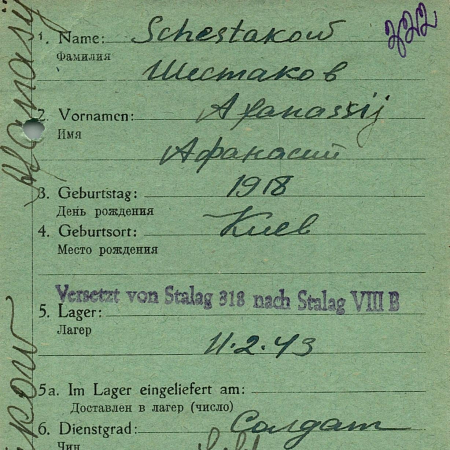 222
1. Name: Schestakow
Фамилия
Шестаков
2. Vornamen: Afanassij
Имя
Афанасий
3. Geburtstag: 1918
День рождения
4. Geburtsort: Киев
Место рождения
Versetzt von Stalag 318 nach Stalag VIII B
5. Lager:
Лагер
11.2.43
5a. Im Lager eingeliefert am:
Доставлен в лагер (число)
6. Dienstgrad: Солдат
Чин
Afanasij